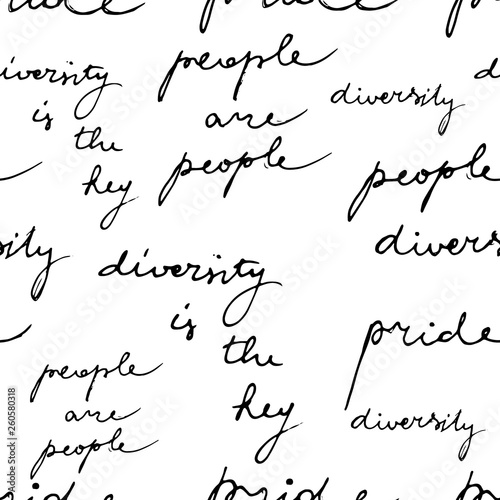 people
are
people
diversity
is
the
key
diversity
people
diversity
is
the
key
pride
people
are
people
diversity
Adobe Stock | #260580318